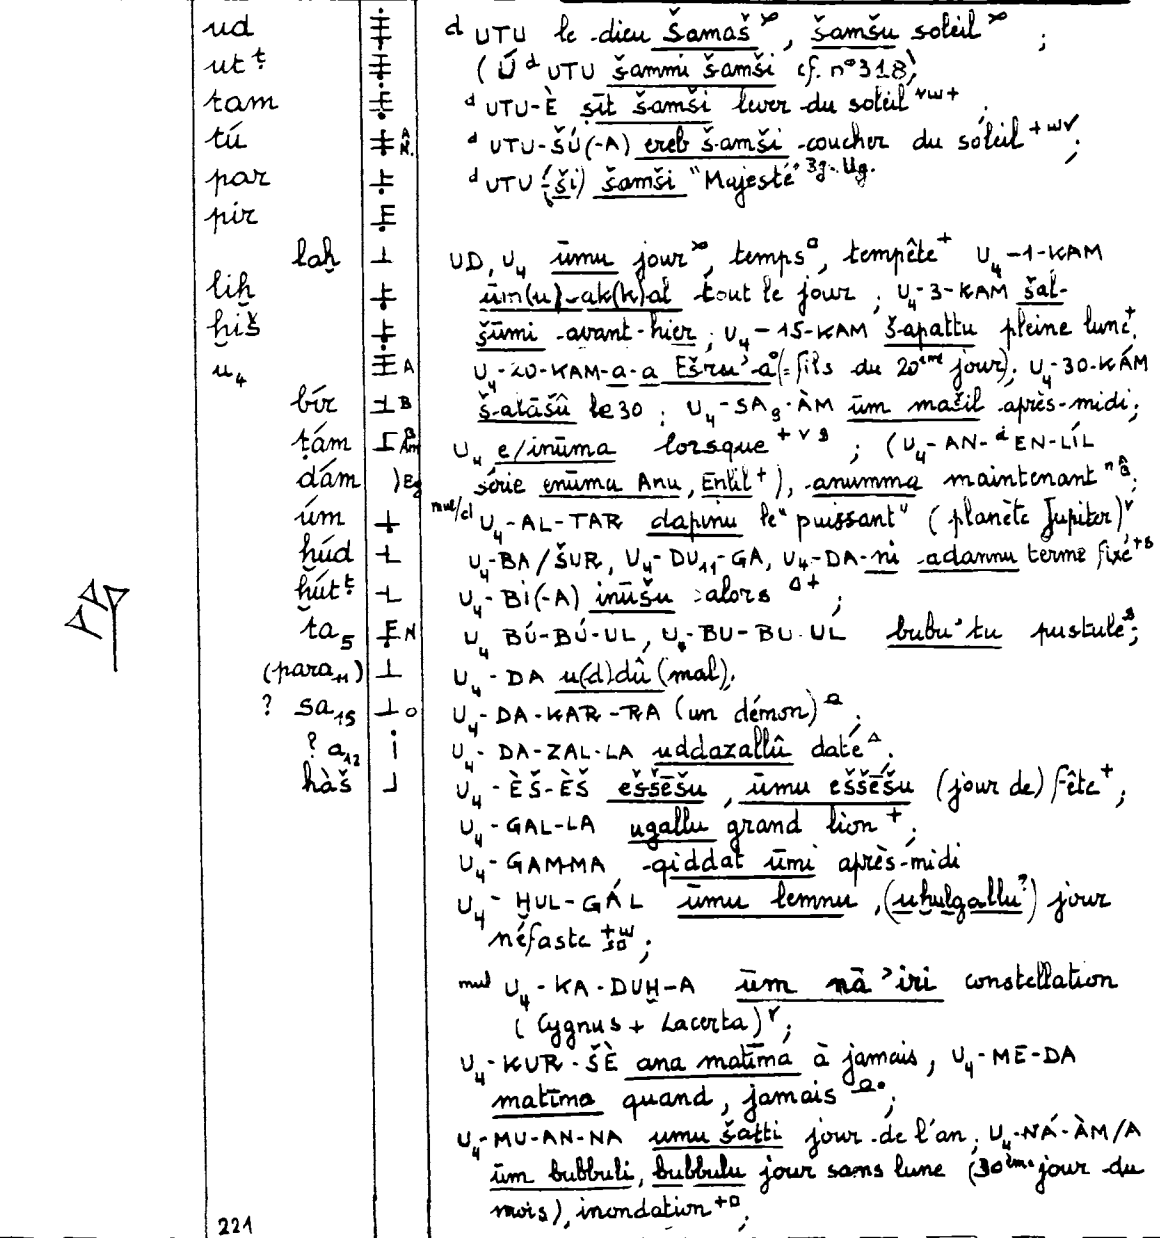 ud ᵈ UTU le dieu Šamaš, šamšu soleil ;
utṭ (Ú ᵈ UTU šammi šamši cf. n°318)
tam ᵈ UTU-È ṣīt šamši lever du soleil ᵛʷ⁺ ;
tú ᵈ UTU-ŠÚ(-A) ereb šamši coucher du soleil ⁺ʷᵛ ;
par ᵈ UTU (ši) šamši "Majesté" Bg. Ug.
pir
laḫ UD, U₄ ūmu jour, temps, tempête⁺ U₄-1-KAM
liḫ ūm(u)-ak(k)al tout le jour ; U₄-3-KAM šal-
ḫiš šūmi avant-hier ; U₄-15-KAM šapattu pleine lune⁺.
u₄ A U₄-20-KAM-a-a Ešru'a (= fils du 20ème jour). U₄-30-KÁM
bír B šalāšû le 30 ; U₄-SA₉-ÀM ūm mašil après-midi ;
ṭám U₄ e/inūma lorsque ⁺ᵛ ; (U₄-AN-ᵈEN-LÍL
dám série enūma Anu, Enlil⁺), anumma maintenant ;
úm mul/d U₄-AL-TAR dapinu le "puissant" (planète Jupiter)ᵛ
ḫúd U₄-BA/ŠUR, U₄-DU₁₁-GA, U₄-DA-ni adannu terme fixé
ḫútṭ U₄-BI(-A) inūšu alors ;
ta₅ N U₄ BÚ-BÚ-UL, U₄-BU-BU-UL bubu'tu pustule ;
(para₁₁) U₄-DA u(d)dû (mal).
? sa₁₅ U₄-DA-KAR-RA (un démon) ;
? a₁₂ U₄-DA-ZAL-LA uddazallû daté ;
hàš U₄-ÈŠ-ÈŠ eššēšu, ūmu eššēšu (jour de) fête⁺ ;
U₄-GAL-LA ugallu grand lion⁺ ;
U₄-GAM-MA qiddat ūmi après-midi
U₄-ḪUL-GÁL ūmu lemnu, (uḫulgallu?) jour
néfaste ;
mul U₄-KA-DUḪ-A ūm nā'iri constellation
(Cygnus + Lacerta)ᵛ ;
U₄-KUR-ŠÈ ana matīma à jamais, U₄-ME-DA
matīma quand, jamais ;
U₄-MU-AN-NA umu šatti jour de l'an ; U₄-NÁ-ÀM/A
ūm bubbuli, bubbulu jour sans lune (30ème jour du
mois), inondation ;
221